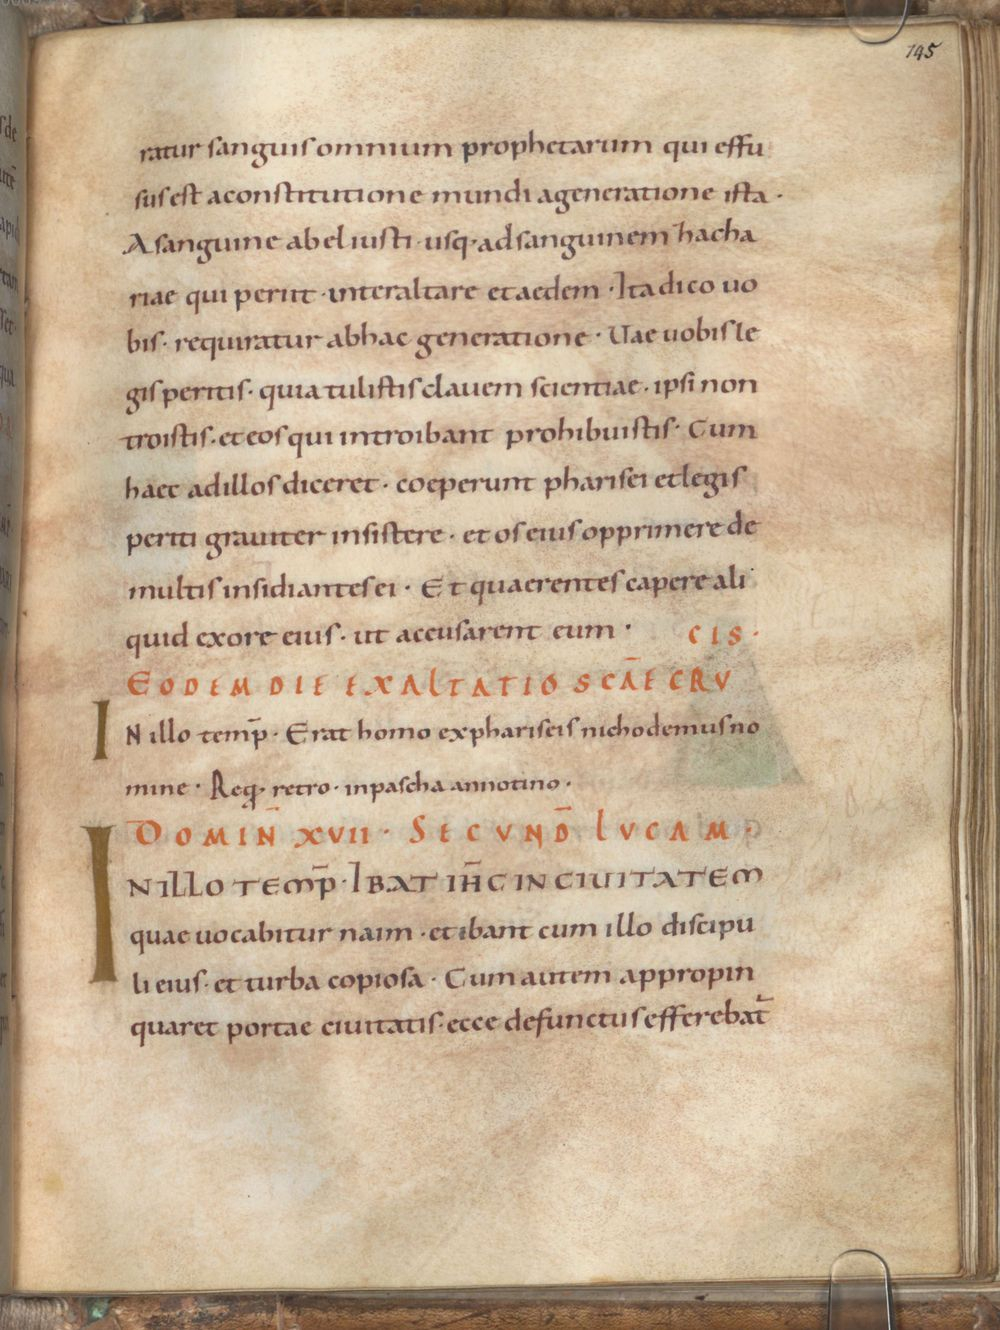 145
ratur sanguis omnium prophetarum qui effu
sus est a constitutione mundi a generatione ista ·
A sanguine abel iusti · usq· ad sanguinem hacha
riae qui periit · inter altare et aedem · Ita dico uo
bis · requiratur ab hac generatione · Uae uobis le
gis peritis · quia tulistis clauem scientiae · ipsi non
troistis · et eos qui introibant prohibuistis · Cum
haec ad illos diceret · coeperunt pharisei et legis
periti grauiter insistere · et os eius opprimere de
multis insidiantes ei · Et quaerentes capere ali
quid ex ore eius · ut accusarent eum ·
CIS ·
EODEM DIE EXALTATIO SCĀE CRV
IN illo temp̄ · Erat homo ex phariseis nichodemus no
mine · Req· retro · in pascha annotino ·
DOMIN̄ XVII · SECVND̄ LVCAM ·
IN ILLO TEMP̄ · IBAT IH̄C IN CIUITATEM
quae uocabitur naim · et ibant cum illo discipu
li eius · et turba copiosa · Cum autem appropin
quaret portae ciuitatis · ecce defunctus efferebat̄